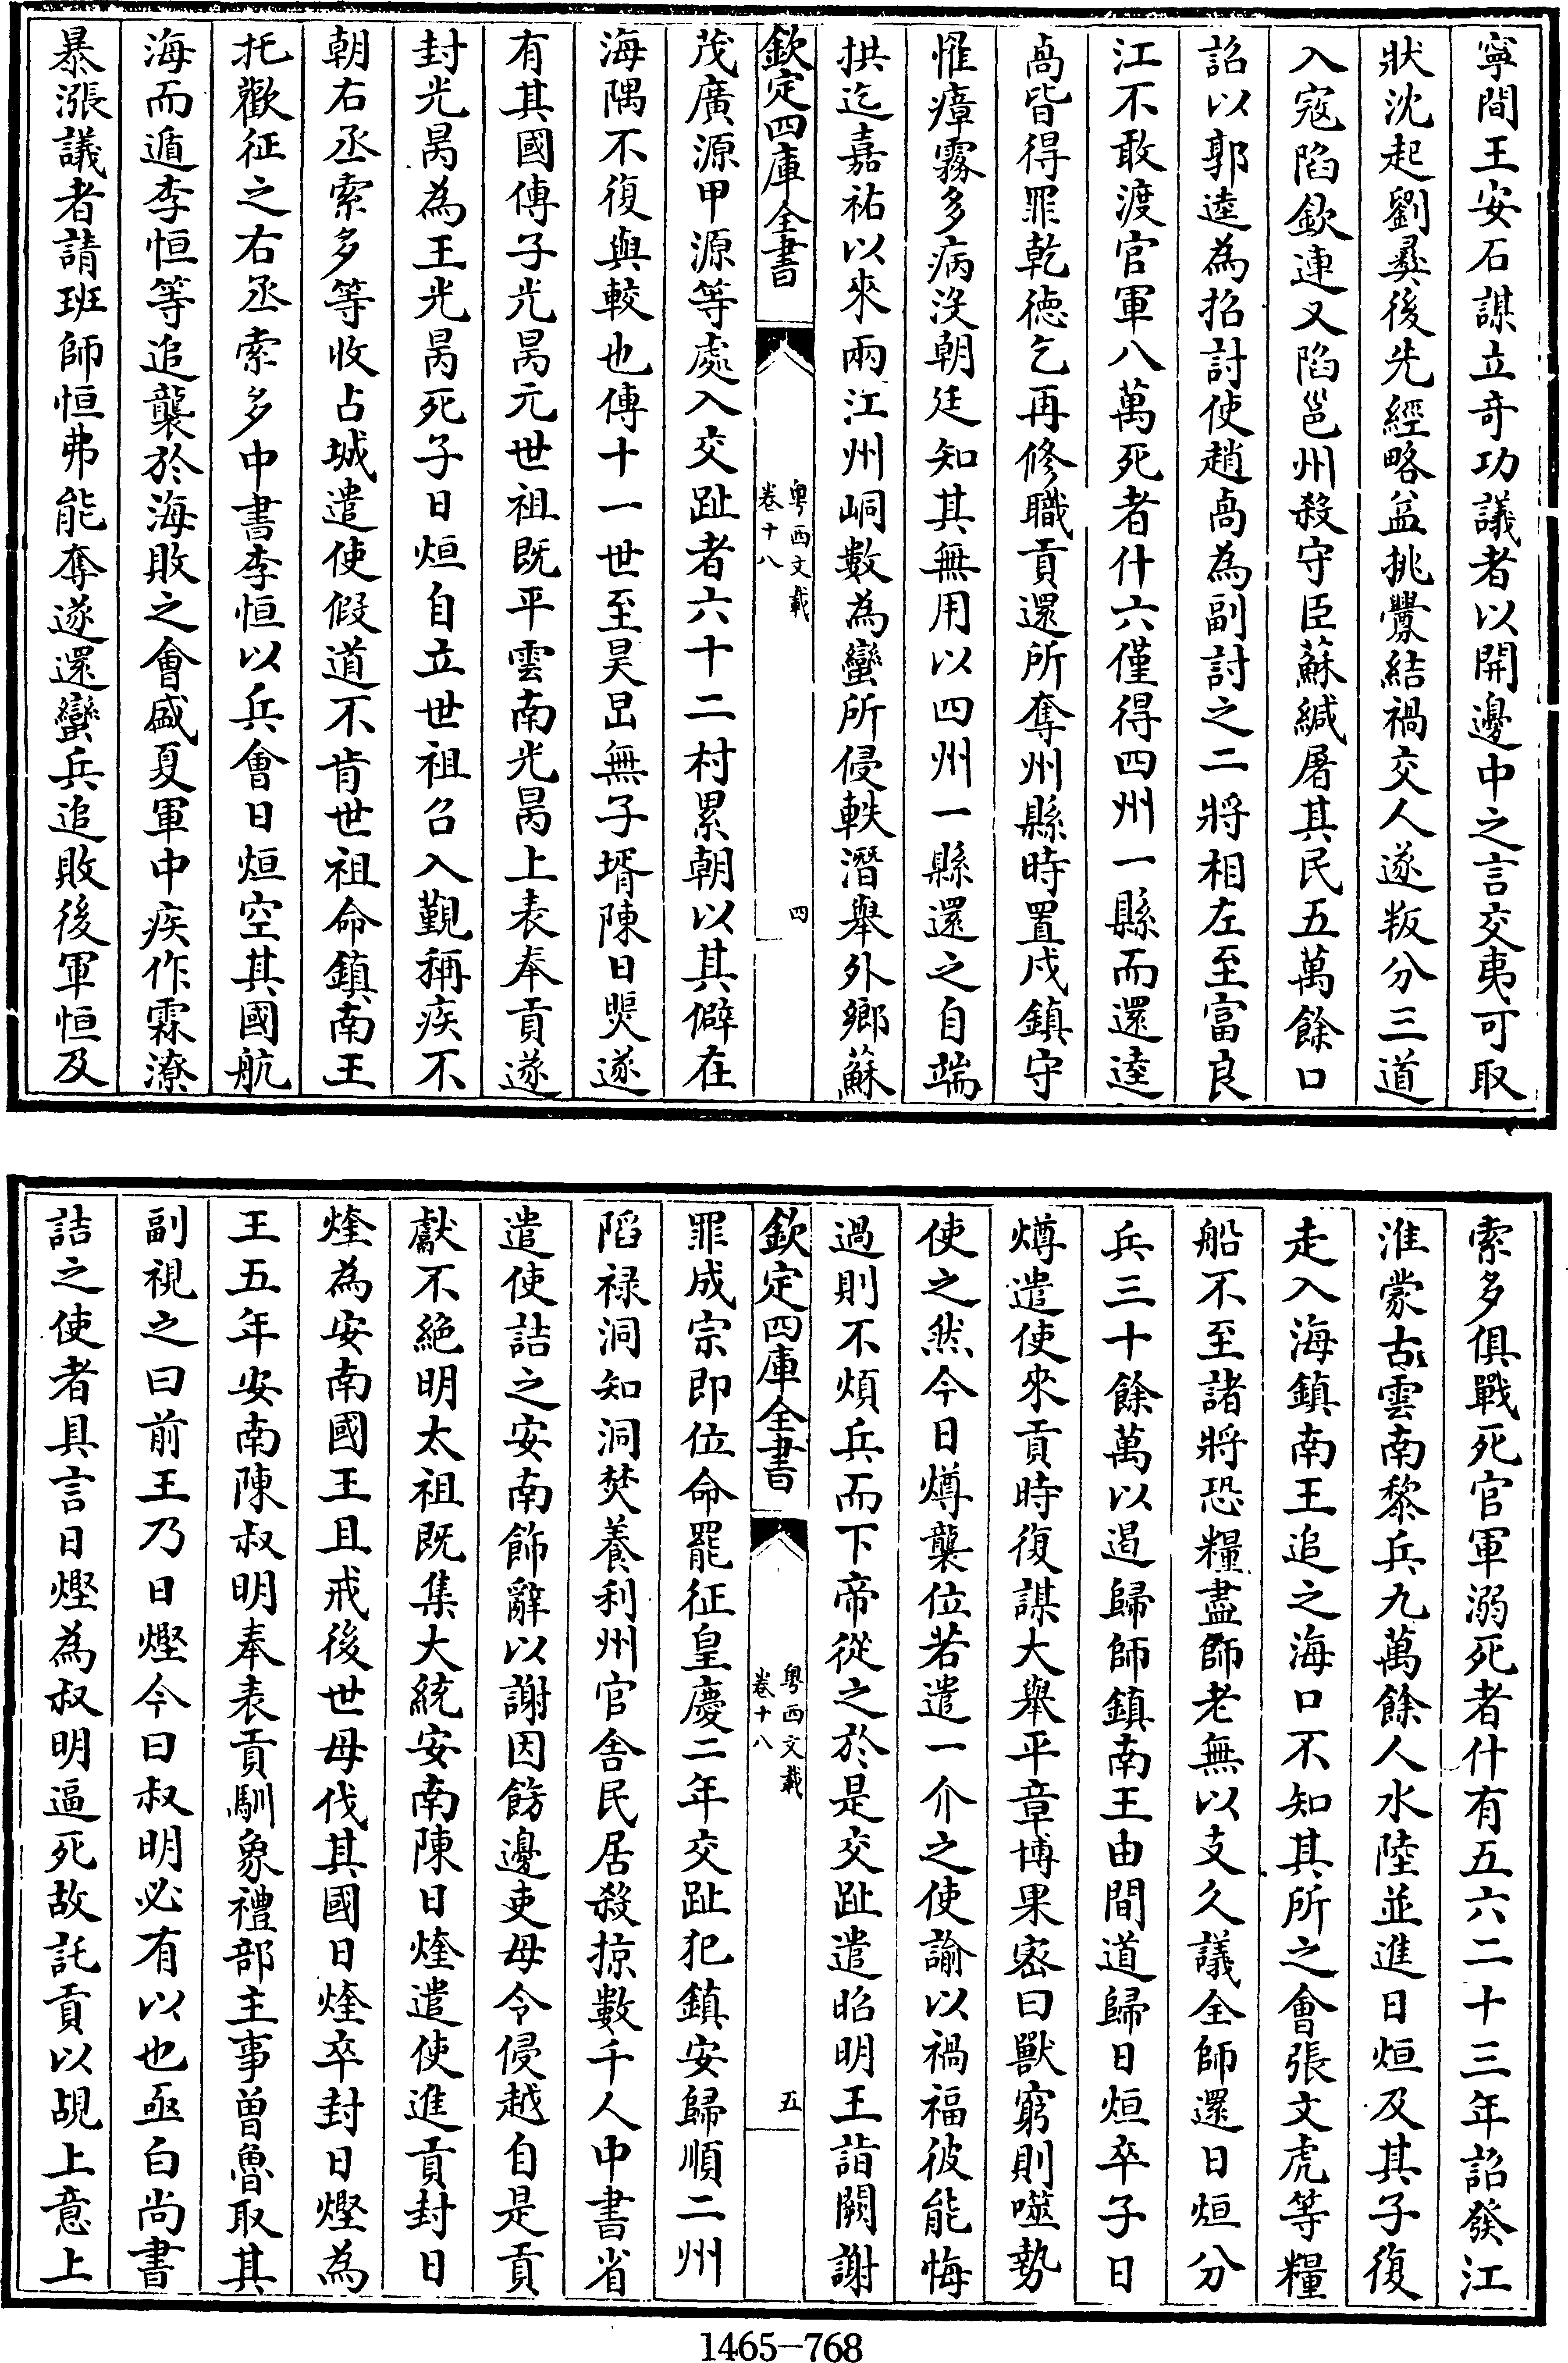 寧間王安石謀立奇功議者以開邊中之言交夷可取
狀沈起劉彞後先經略益挑釁結禍交人遂叛分三道
入寇陷欽連又陷邕州殺守臣蘇緘屠其民五萬餘口
詔以郭逵為招討使趙卨為副討之二將相左至富良
江不敢渡官軍八萬死者什六僅得四州一縣而還逵
卨皆得罪乾德乞再修職貢還所奪州縣時置戍鎮守
惟瘴霧多病沒朝廷知其無用以四州一縣還之自端
拱迄嘉祐以來兩江州峒數為蠻所侵軼潛舉外鄉蘇
欽定四庫全書
粵西文載
卷十八
四
茂廣源甲源等處入交趾者六十二村累朝以其僻在
海隅不復與較也傳十一世至昊旵無子壻陳日煚遂
有其國傳子光昺元世祖既平雲南光昺上表奉貢遂
封光昺為王光昺死子日烜自立世祖召入覲稱疾不
朝右丞索多等收占城遣使假道不肯世祖命鎮南王
托歡征之右丞索多中書李恒以兵會日烜空其國航
海而遁李恒等追襲於海敗之會盛夏軍中疾作霖潦
暴漲議者請班師恒弗能奪遂還蠻兵追敗後軍恒及
索多俱戰死官軍溺死者什有五六二十三年詔發江
淮蒙古雲南黎兵九萬餘人水陸並進日烜及其子復
走入海鎮南王追之海口不知其所之會張文虎等糧
船不至諸將恐糧盡師老無以支久議全師還日烜分
兵三十餘萬以遏歸師鎮南王由間道歸日烜卒子日
燇遣使來貢時復謀大舉平章博果密曰獸窮則噬勢
使之然今日燇襲位若遣一介之使諭以禍福彼能悔
過則不煩兵而下帝從之於是交趾遣昭明王詣闕謝
欽定四庫全書
粵西文載
卷十八
五
罪成宗即位命罷征皇慶二年交趾犯鎮安歸順二州
陷禄洞知洞焚養利州官舍民居殺掠數千人中書省
遣使詰之安南飾辭以謝因飭邊吏毋令侵越自是貢
獻不絶明太祖既集大統安南陳日煃遣使進貢封日
煃為安南國王且戒後世毋伐其國日煃卒封日熞為
王五年安南陳叔明奉表貢馴象禮部主事曾魯取其
副視之曰前王乃日熞今曰叔明必有以也亟白尚書
詰之使者具言日熞為叔明逼死故託貢以覘上意上
1465-768